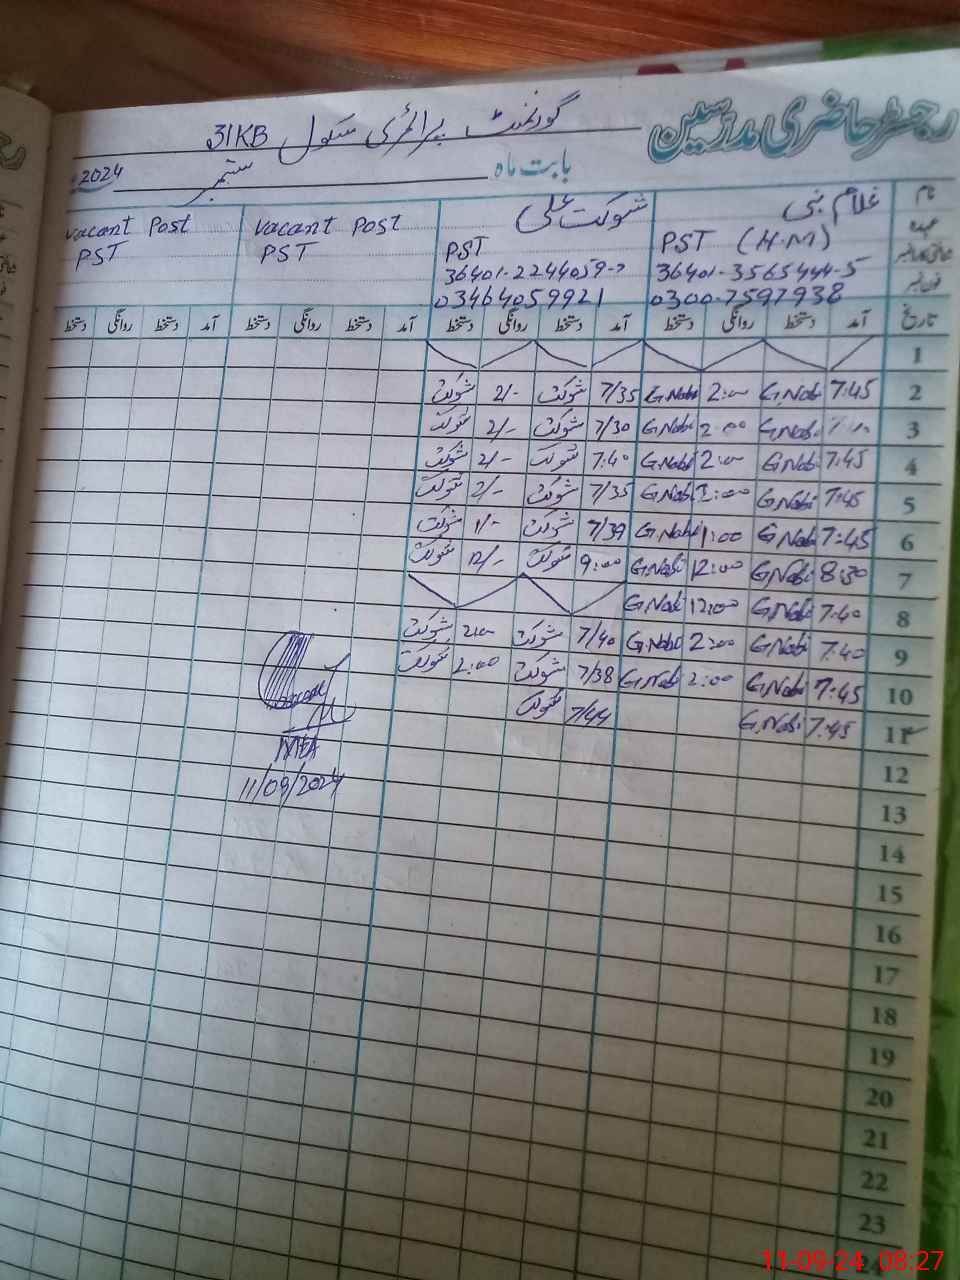 رجسٹر حاضری مدرسین
گورنمنٹ پرائمری سکول 31KB
بابت ماہ ستمبر 2024
نام غلام نبی شوکت علی vacant Post vacant Post
عہدہ PST (H.M) PST PST PST
شناختی کارڈ نمبر 36401-3565444-5 36401-2244059-
فون نمبر 0300-7597938 03464059921
تاریخ آمد دستخط روانگی دستخط آمد دستخط روانگی دستخط آمد دستخط روانگی دستخط آمد دستخط روانگی دستخط
1
2 7:45 G.Nabi 2:00 G.Nabi 7/35 شوکت 2/- شوکت
3 G.Nabi 2:00 G.Nabi 7/30 شوکت 2/- شوکت
4 7:45 G.Nabi 2:00 G.Nabi 7:40 شوکت 2/- شوکت
5 7:45 G.Nabi 2:00 G.Nabi 7/35 شوکت 2/- شوکت
6 7:45 G.Nabi 1:00 G.Nabi 7/39 شوکت 1/- شوکت
7 8:30 G.Nabi 12:00 G.Nabi 9:00 شوکت 12/- شوکت
8 7:40 G.Nabi 12:00 G.Nabi
9 7:40 G.Nabi 2:00 G.Nabi 7/40 شوکت 2:00 شوکت
10 7:45 G.Nabi 2:00 G.Nabi 7/38 شوکت 2:00 شوکت
11 7:45 G.Nabi 7/44 شوکت
MEA
11/09/2024
12
13
14
15
16
17
18
19
20
21
22
23
11-09-24 08:27